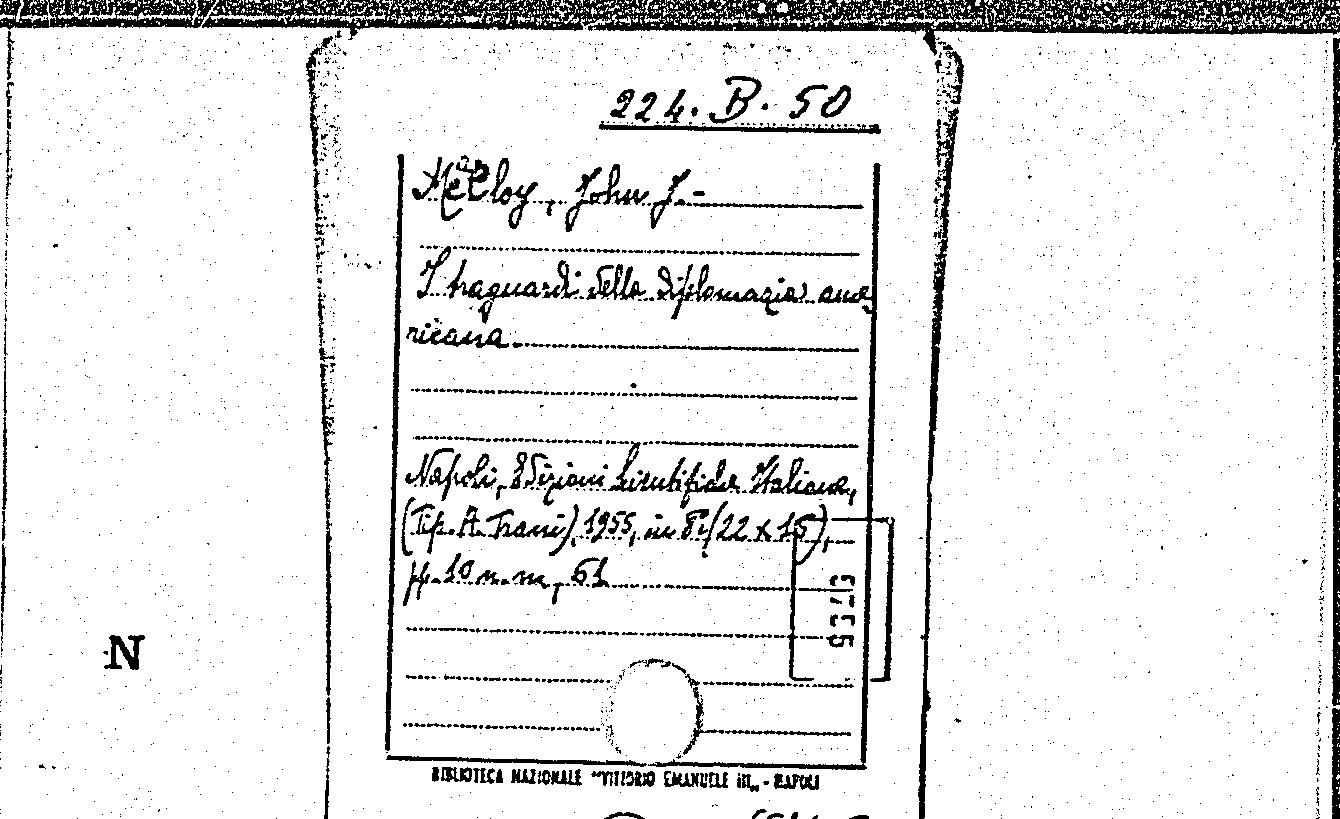 224. B. 50
McCloy, John J.-
I traguardi della diplomazia ame
ricana.
Napoli, Edizioni Scientifiche Italiane,
(Tip. A. Frani), 1955, in 8°, (22 x 15),
pp. 10 n. n., 61
5755
N
BIBLIOTECA NAZIONALE "VITTORIO EMANUELE III„ - NAPOLI